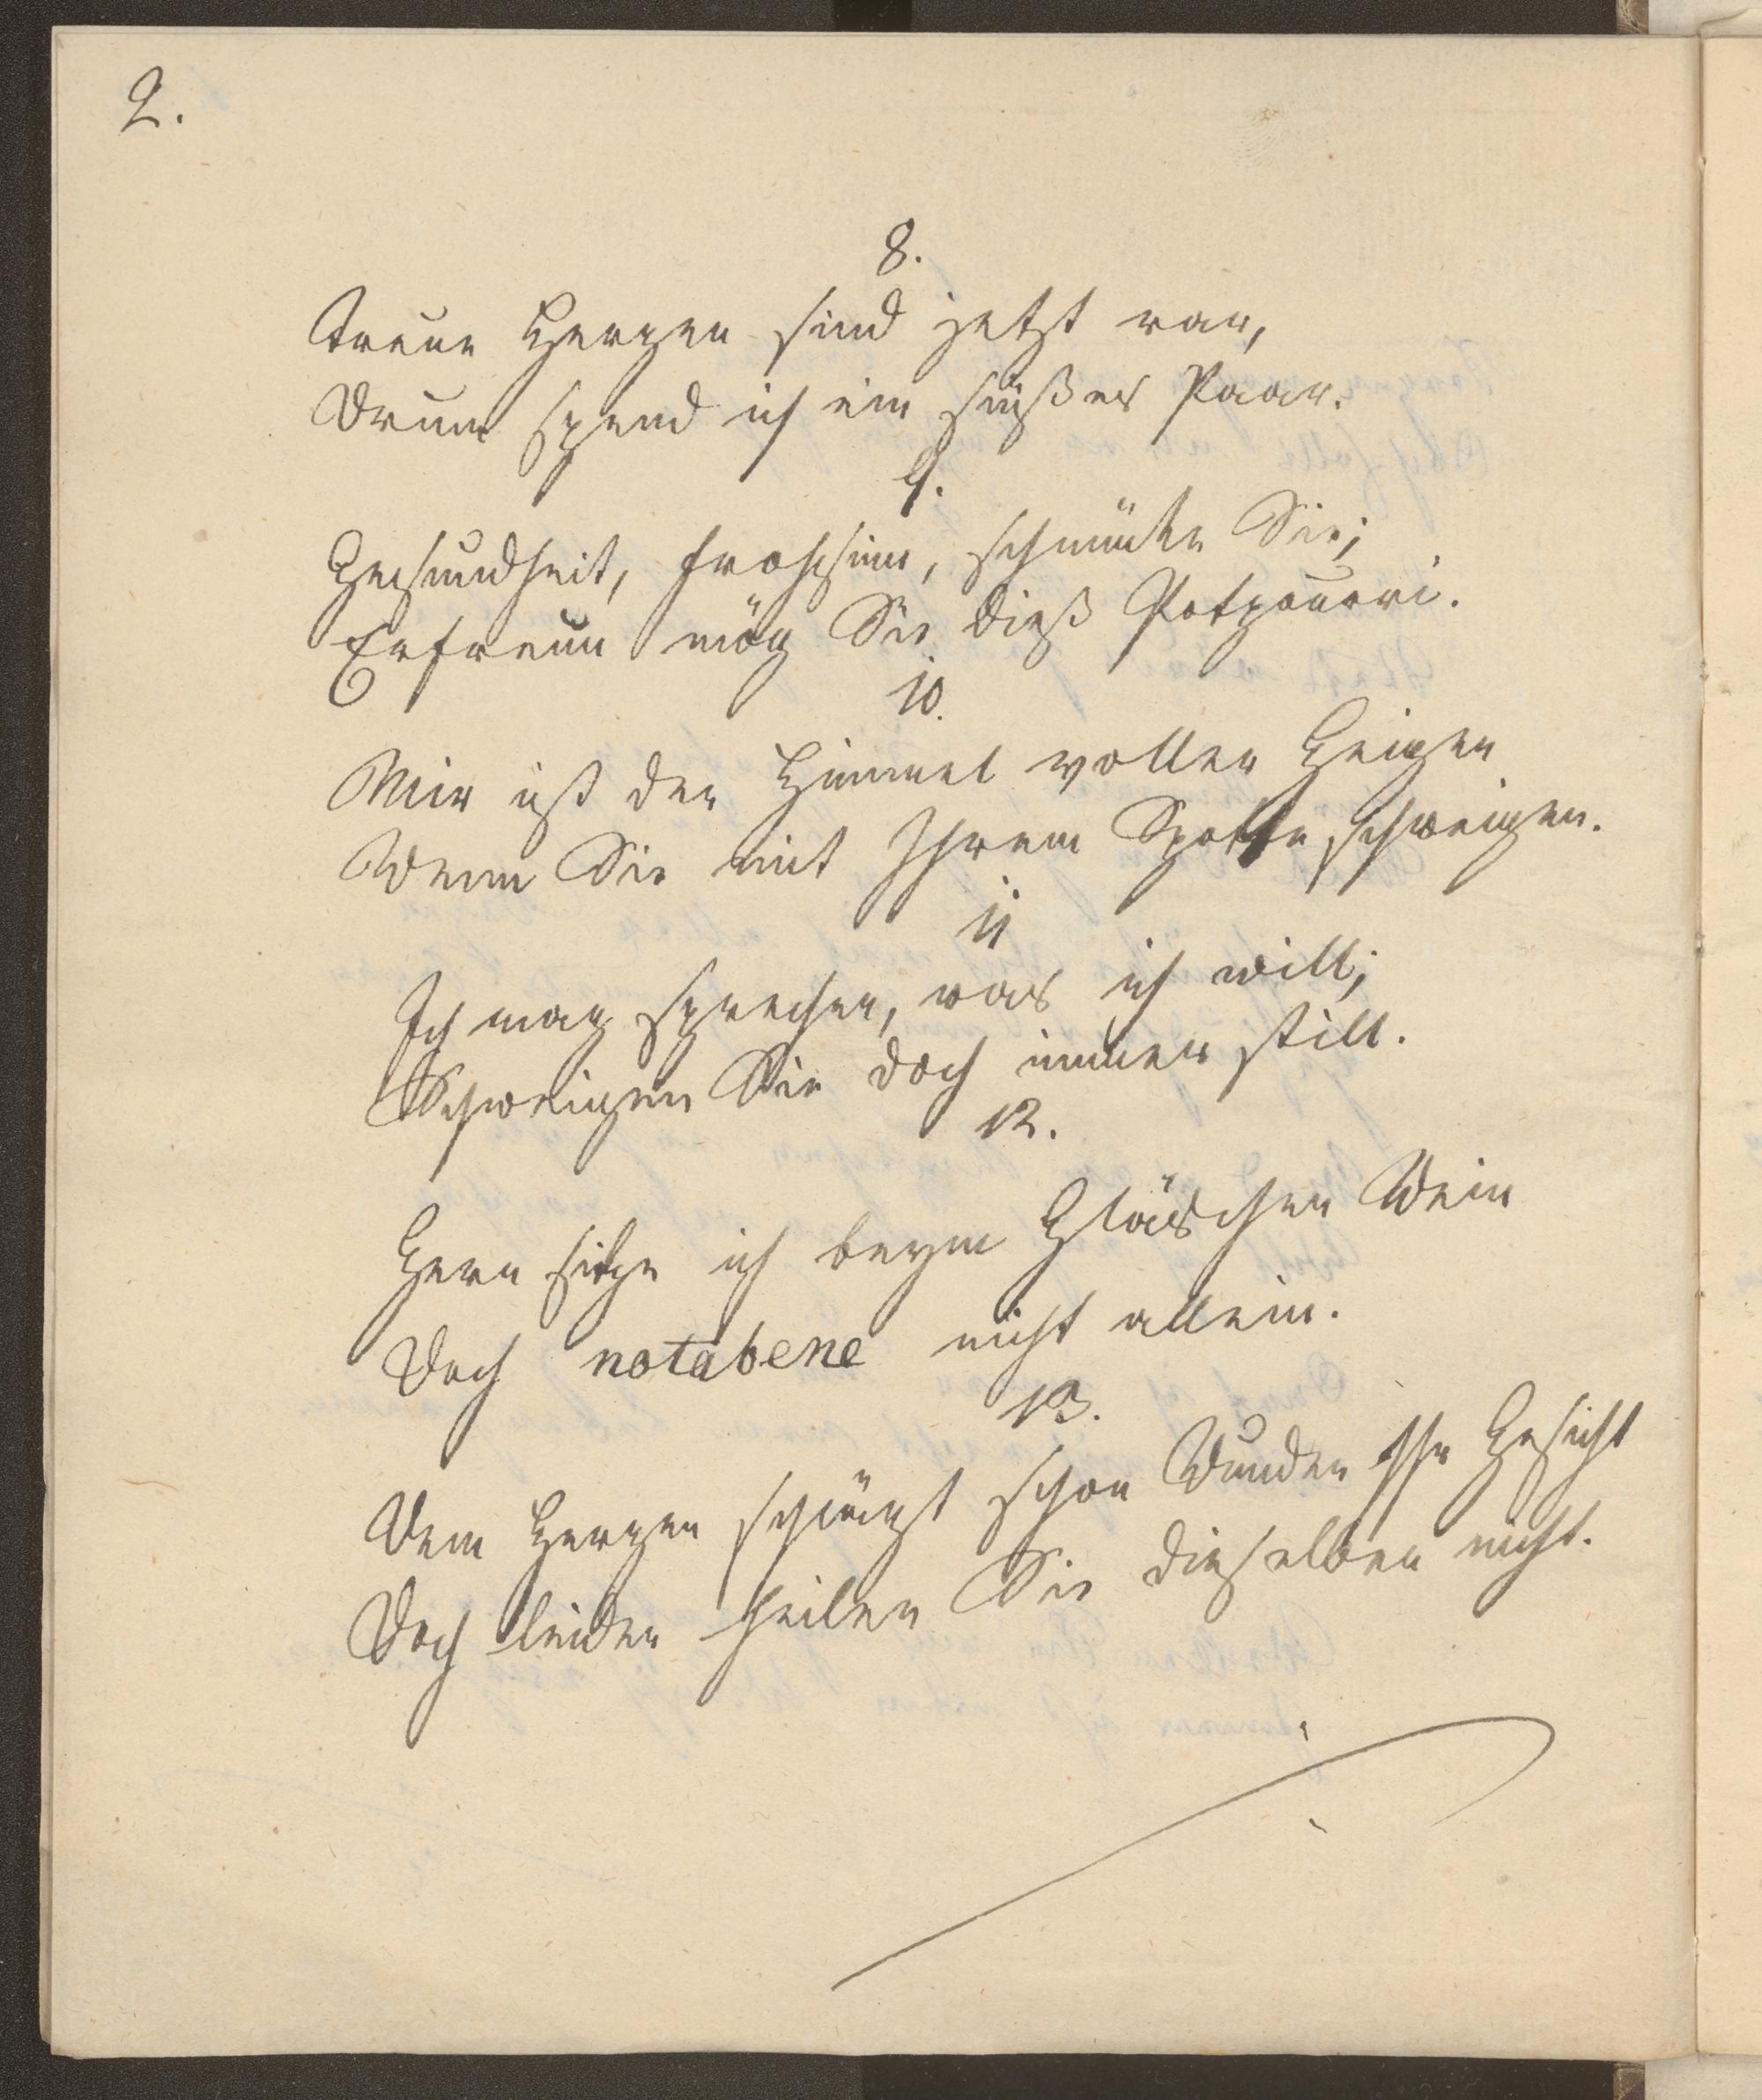 2.
8.
Treue Herzen sind jetzt rar,
Drum spend ich ein süßes Paar.
9.
Gesundheit, Frohsinn, schmücke Sie;
Erfreun mög Sie dieß Potpourri.
10.
Mir ist der Himmel voller Geigen
Wenn Sie mit Ihrem Spotte schweigen.
11
Ich mag sprechen, was ich will;
Schweigen Sie doch immer still.
12.
Gern sitze ich beym Gläschen Wein
Doch notabene nicht allein.
13.
Dem Herzen schlägt schon Wunden Ihr Gesicht
Doch leider heilen Sie dieselben nicht.